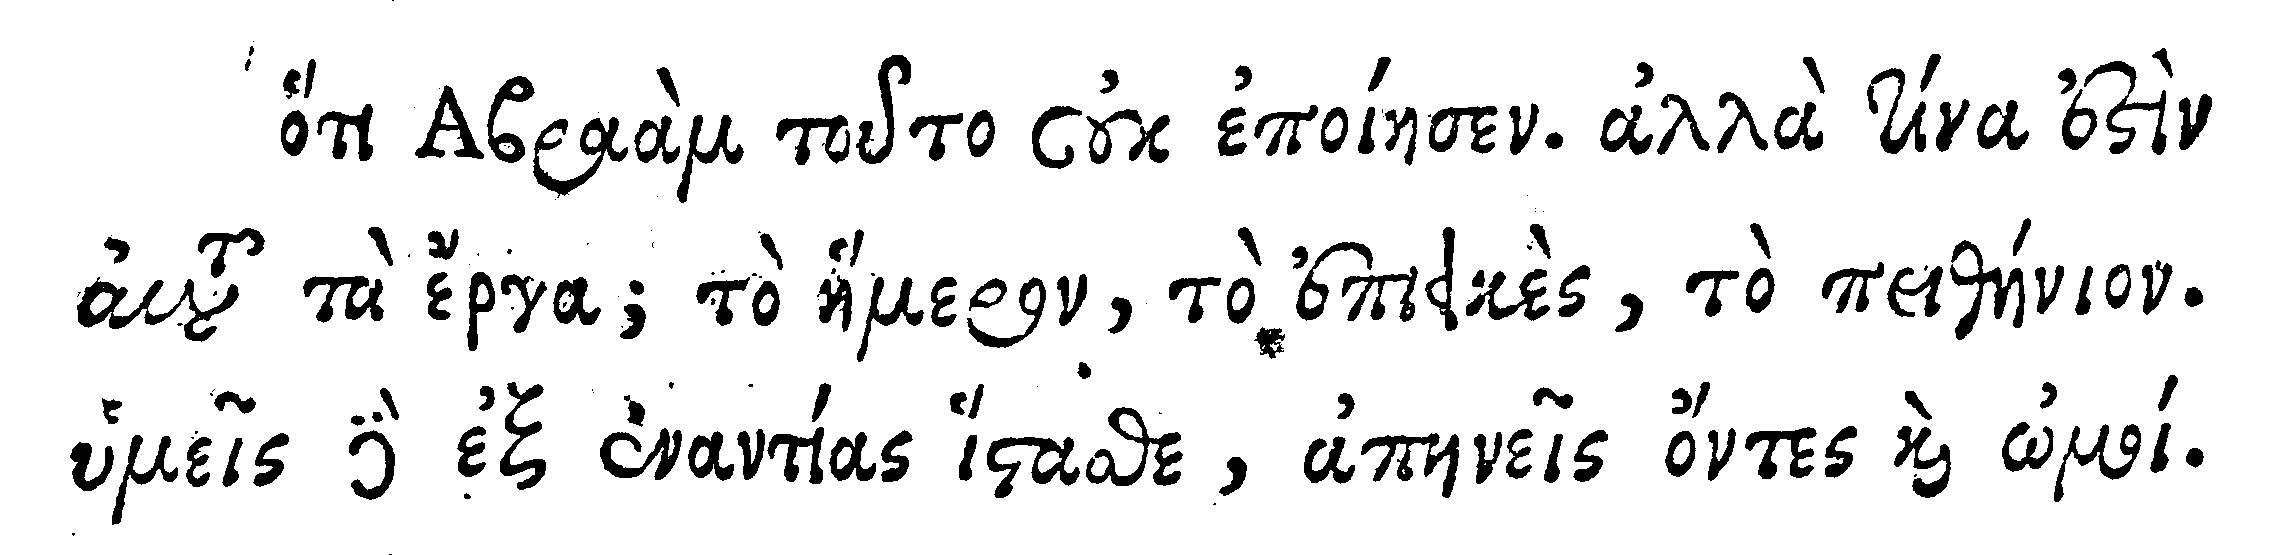 ὅτι Αβραὰμ τοῦτο οὐκ ἐποίησεν. ἀλλὰ τίνα ἐστὶν
αὐτοῦ τὰ ἔργα; τὸ ἥμερον, τὸ ἐπιεικὲς, τὸ πειθήνιον.
ὑμεῖς δὲ ἐξ ἐναντίας ἵστασθε, ἀπηνεῖς ὄντες καὶ ὠμοί.